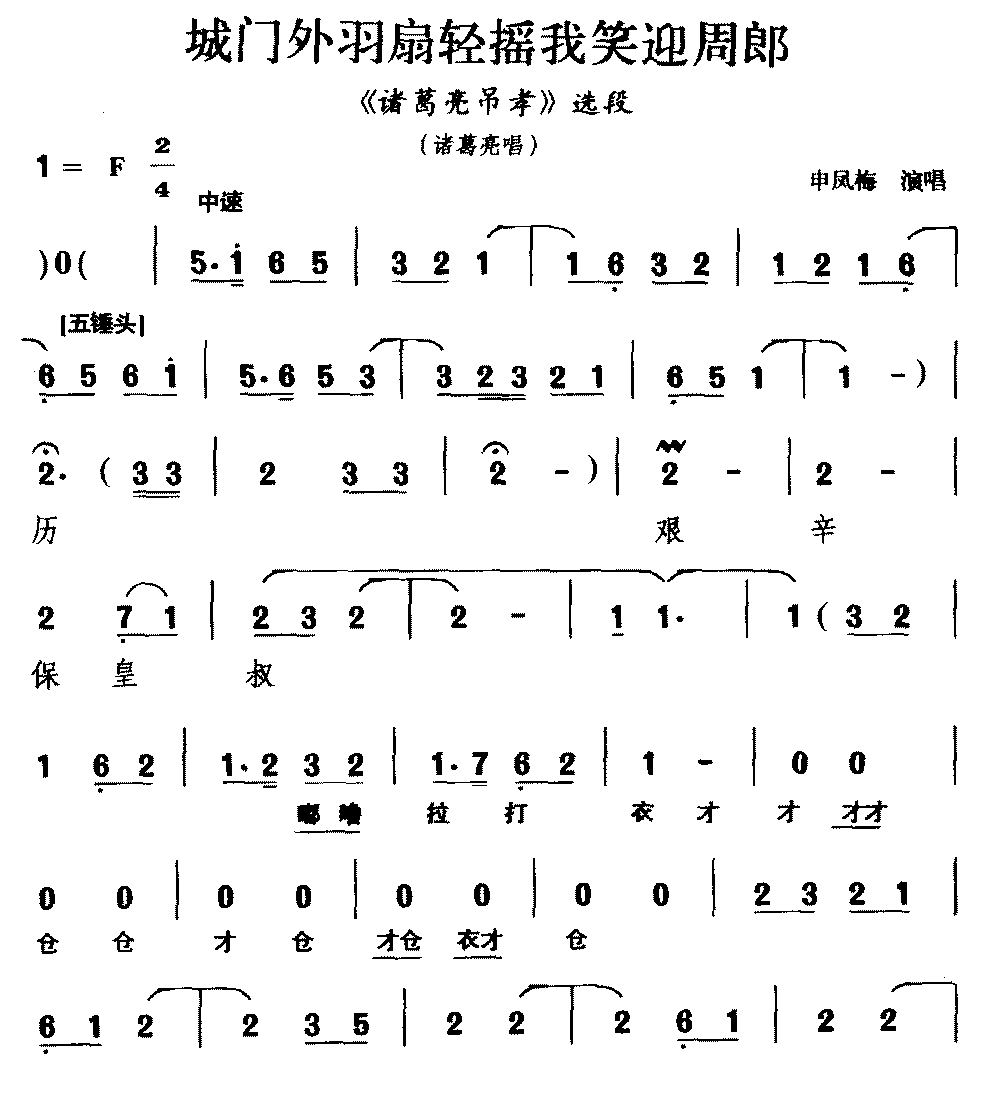 城门外羽扇轻摇我笑迎周郎
《诸葛亮吊孝》选段
(诸葛亮唱)
1 = F 2/4
中速
申凤梅 演唱
)0( | 5·1 6 5 | 3 2 1 | 1 6 3 2 | 1 2 1 6 |
[五锤头]
6 5 6 1 | 5·6 5 3 | 3 2 3 2 1 | 6 5 1 | 1 - ) |
2· ( 3 3 | 2 3 3 | 2 - ) | 2 - | 2 - |
历 艰 辛
2 7 1 | 2 3 2 | 2 - | 1 1· | 1 ( 3 2 |
保 皇 叔
1 6 2 | 1·2 3 2 | 1·7 6 2 | 1 - | 0 0
嘟 拉 打 衣 才 才 才才
0 0 | 0 0 | 0 0 | 0 0 | 2 3 2 1 |
仓 仓 才 仓 才仓 衣才 仓
6 1 2 | 2 3 5 | 2 2 | 2 6 1 | 2 2 |